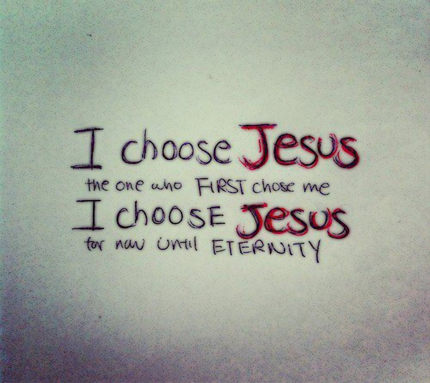 I choose Jesus
the one who FIRST chose me
I choose Jesus
for now until ETERNITY